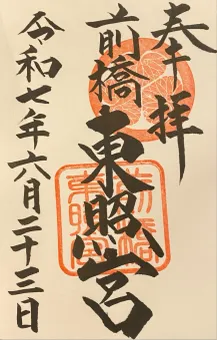 奉拝
前橋
東照宮
令和七年六月二十三日
前橋
東照宮